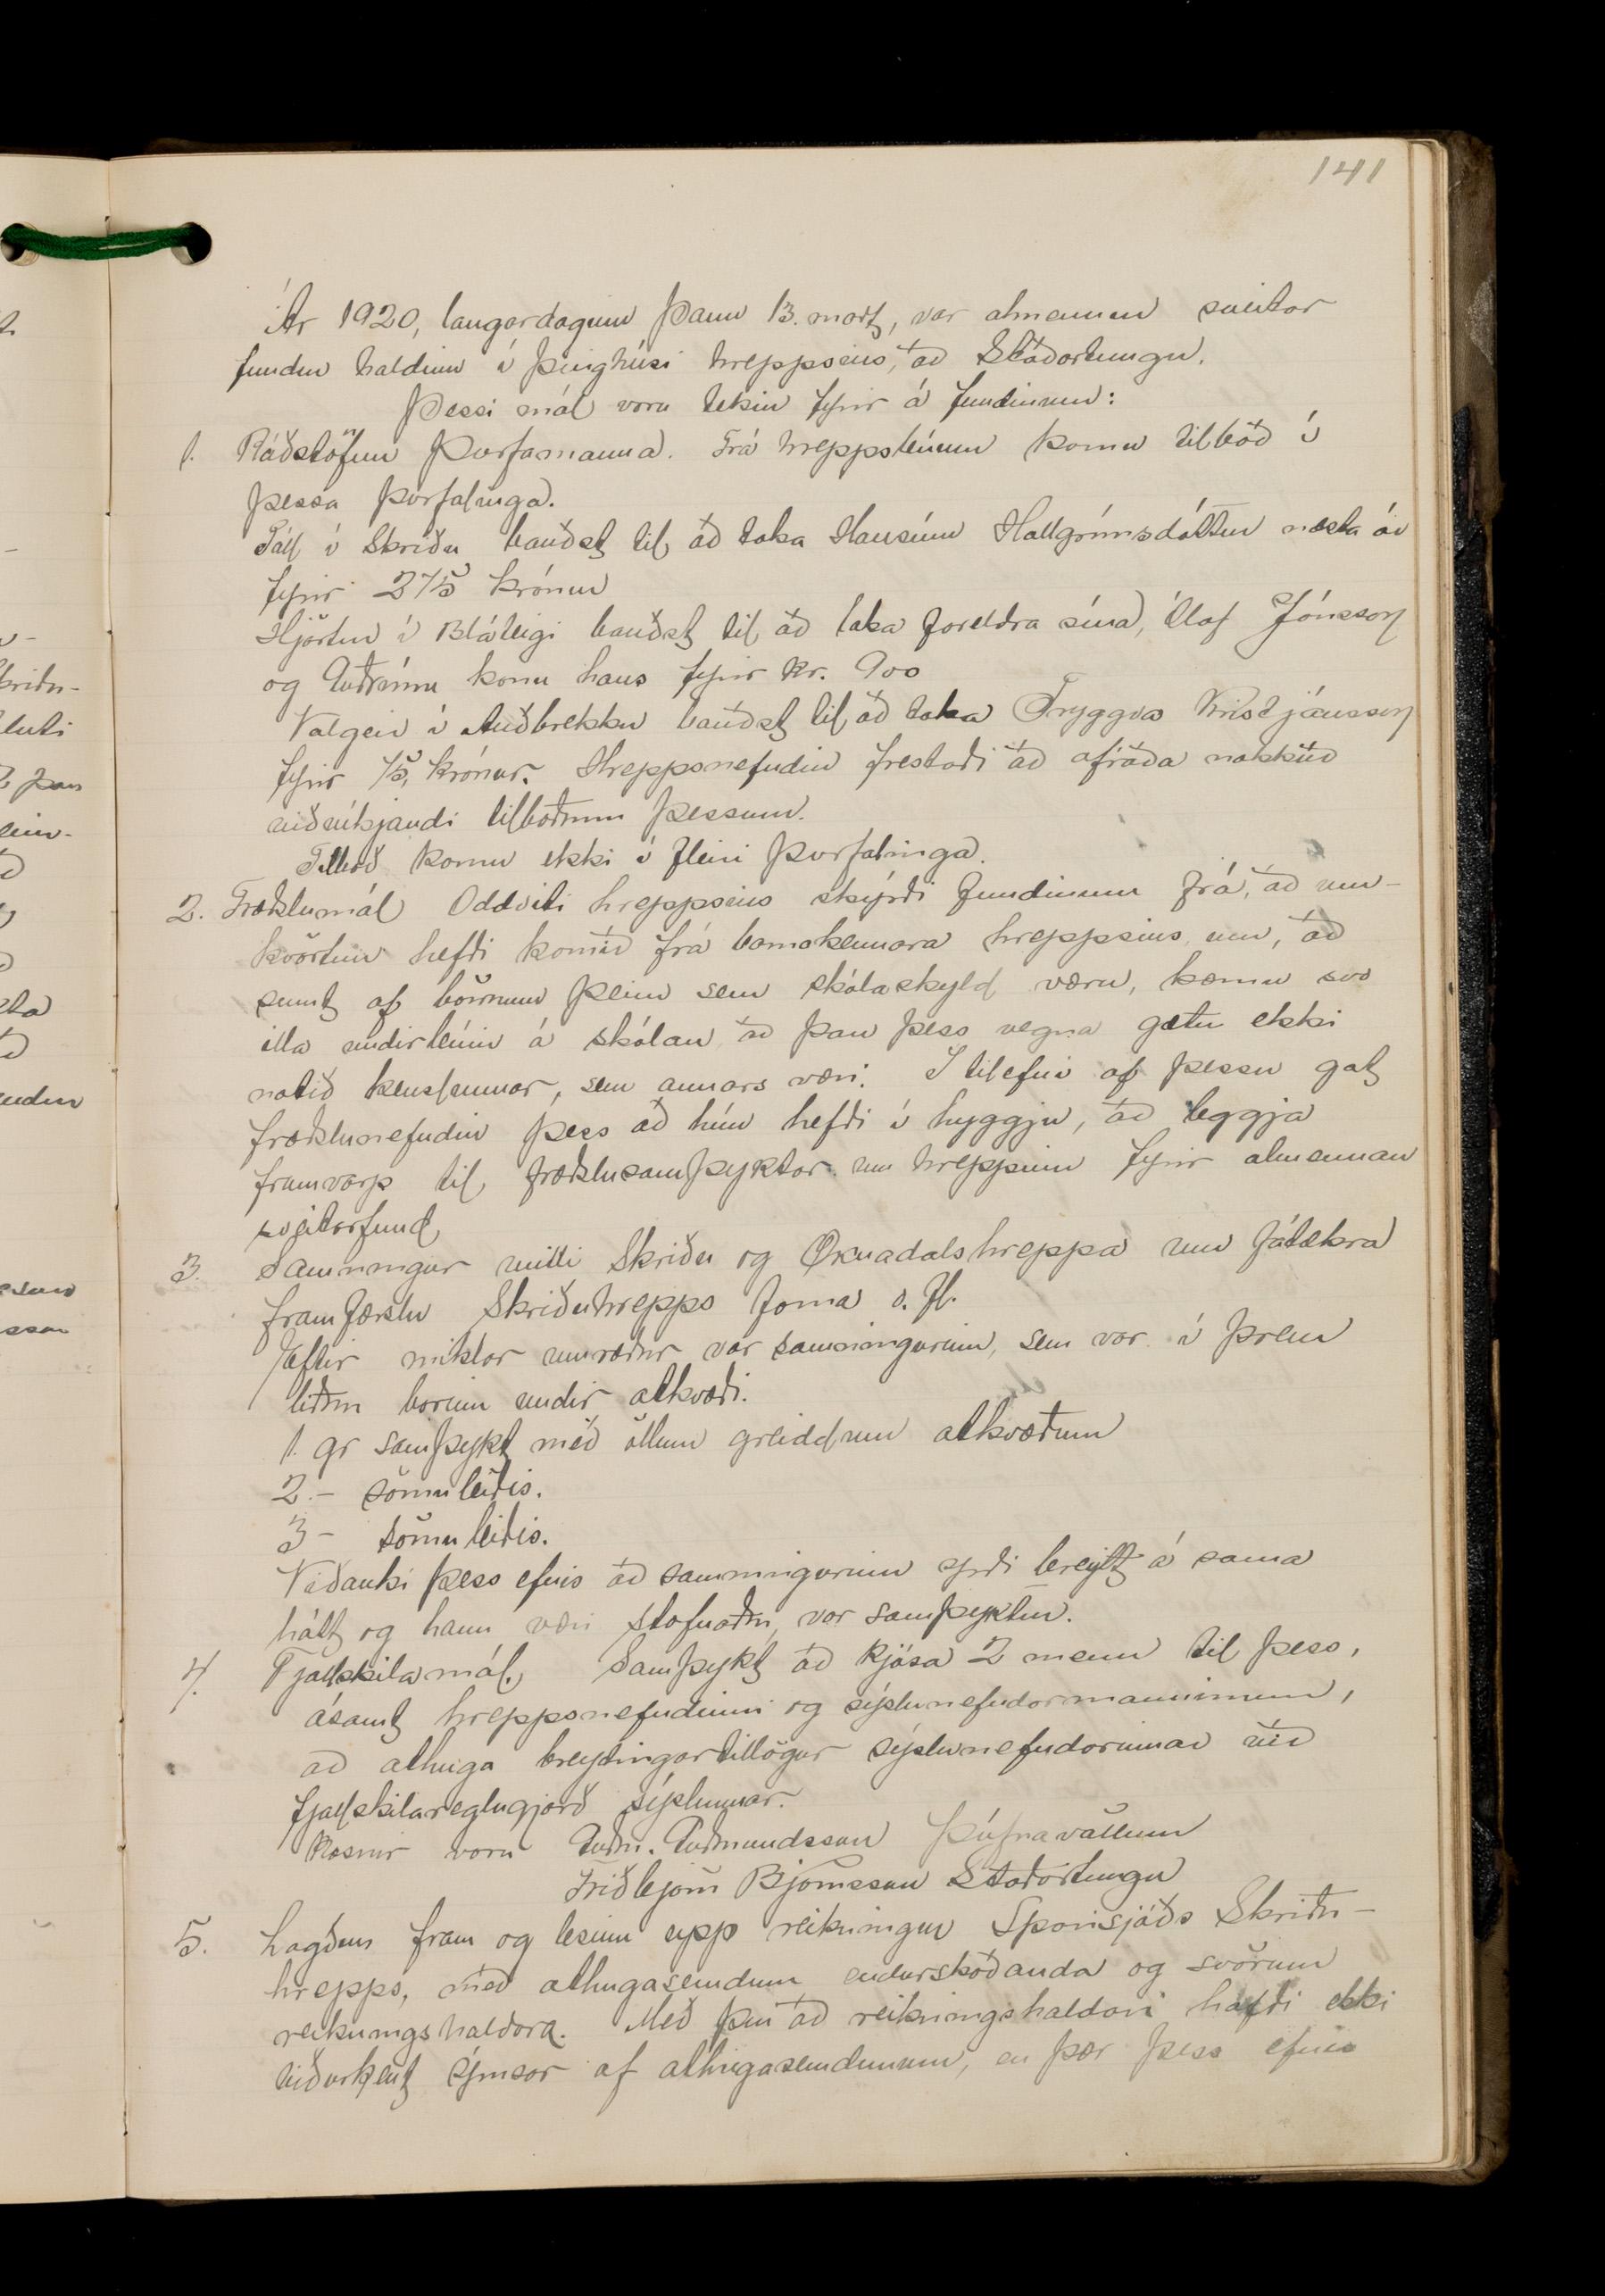 141
Ár 1920, laugardaginn þann 13. mars, var almennur sveitar
fundur haldinn í þinghúsi hreppsins, að Staðartungu.
Þessi mál voru tekin fyrir á fundinum:
1. Ráðstöfun þurfamanna. Frá hreppsbúum komu tilboð í
þessa þurfalinga.
Páll í Skriðu bauðst til að taka Hansínu Hallgrímsdóttur næsta ár
fyrir 275 krónur
Hjörtur í Bláteigi bauðst til að taka foreldra sína, Ólaf Jónsson
og Guðrúnu konu hans fyrir kr. 900
Valgeir í Auðbrekku bauðst til að taka Tryggva Kristjánsson
fyrir 75, krónur. Hreppsnefndin frestaði að afráða nokkuð
viðvíkjandi tilboðum þessum.
Tilboð komu ekki í fleiri þurfalinga.
2. Fræðslumál Oddviti hreppsins skýrði fundinum frá, að um-
kvörtun hefði komið frá barnakennara hreppsins um, að
sumt af börnum þeim sem skólaskyld væru, kæmu svo
illa undirbúin á skólan að þau þess vegna gætu ekki
notið kenslunnar, sem annars væri. Í tilefni af þessu gat
fræðslunefndin þess að hún hefði í hyggju, að leggja
frumvarp til fræðslusamþyktar um hreppinn fyrir almennan
sveitarfund
3. Samningur milli Skriðu og Öxnadalshreppa um fátækra
framfærslu Skriðuhrepps forna o. fl.
Eftir miklar umræður var samningurinn, sem var í þrem
liðum borinn undir atkvæði.
1. gr samþykt með öllum greiddum atkvæðum
2. - sömuleiðis.
3 - sömuleiðis.
Viðauki þess efnis að samningurinn yrði breytt á sama
hátt og hann væri stofnaður, var samþyktur.
4. Fjallskilamál. Samþykt að kjósa 2 menn til þess,
ásamt hreppsnefndinni og sýslunefndarmanninum,
að athuga breytingartillögur sýslunefndarinnar við
fjallskilareglugjörð sýslunnar.
Kosnir voru Guðm. Guðmundsson Þúfnavöllum
Friðbjörn Björnsson Staðartungu
5. Lagður fram og lesinn upp reikningur Sparisjóðs Skriðu-
hrepps, með athugasemdum endurskoðanda og svörum
reikningshaldara. Með því að reikningshaldari hafði ekki
viðurkent ýmsar af athugasemdunum, en þær þess efnis